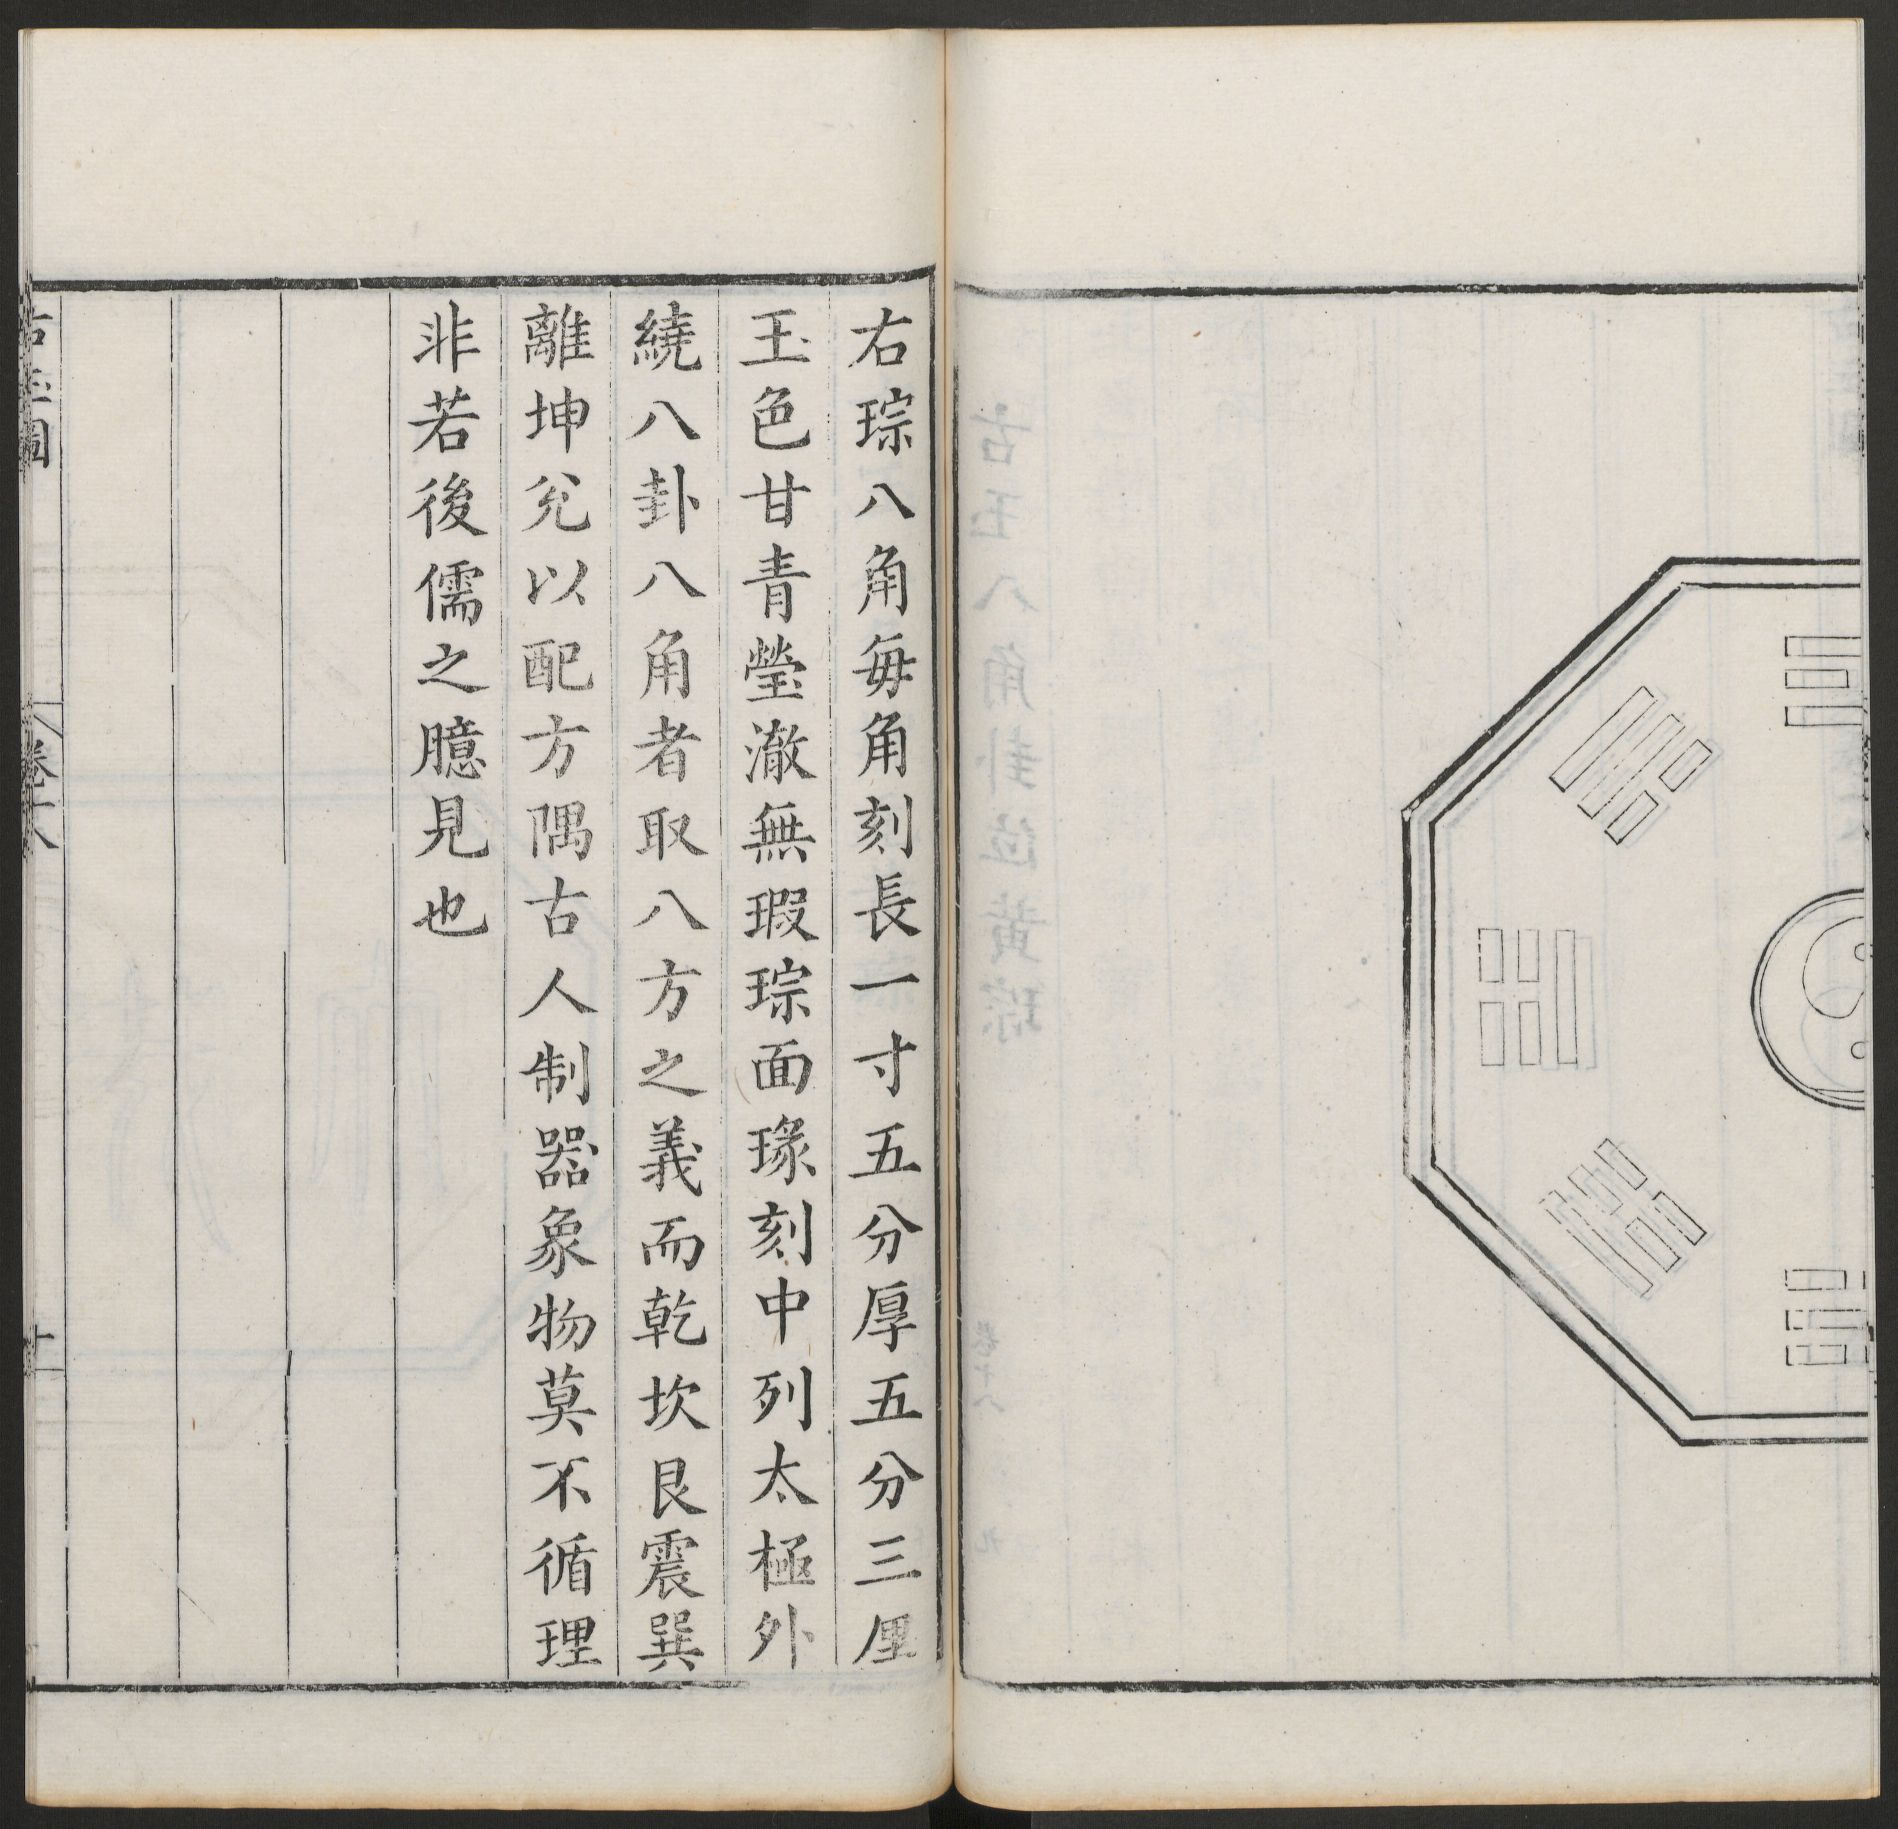 右琮八角每角刻長一寸五分厚五分三厘
玉色甘青瑩澈無瑕琮面瑑刻中列太極外
繞八卦八角者取八方之義而乾坎艮震巽
離坤兊以配方隅古人制器象物莫不循理
非若後儒之臆見也
卷十八